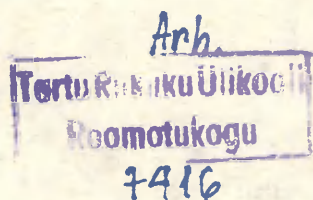 Arh.
Tartu Riikliku Ülikooli
Raamatukogu
7416